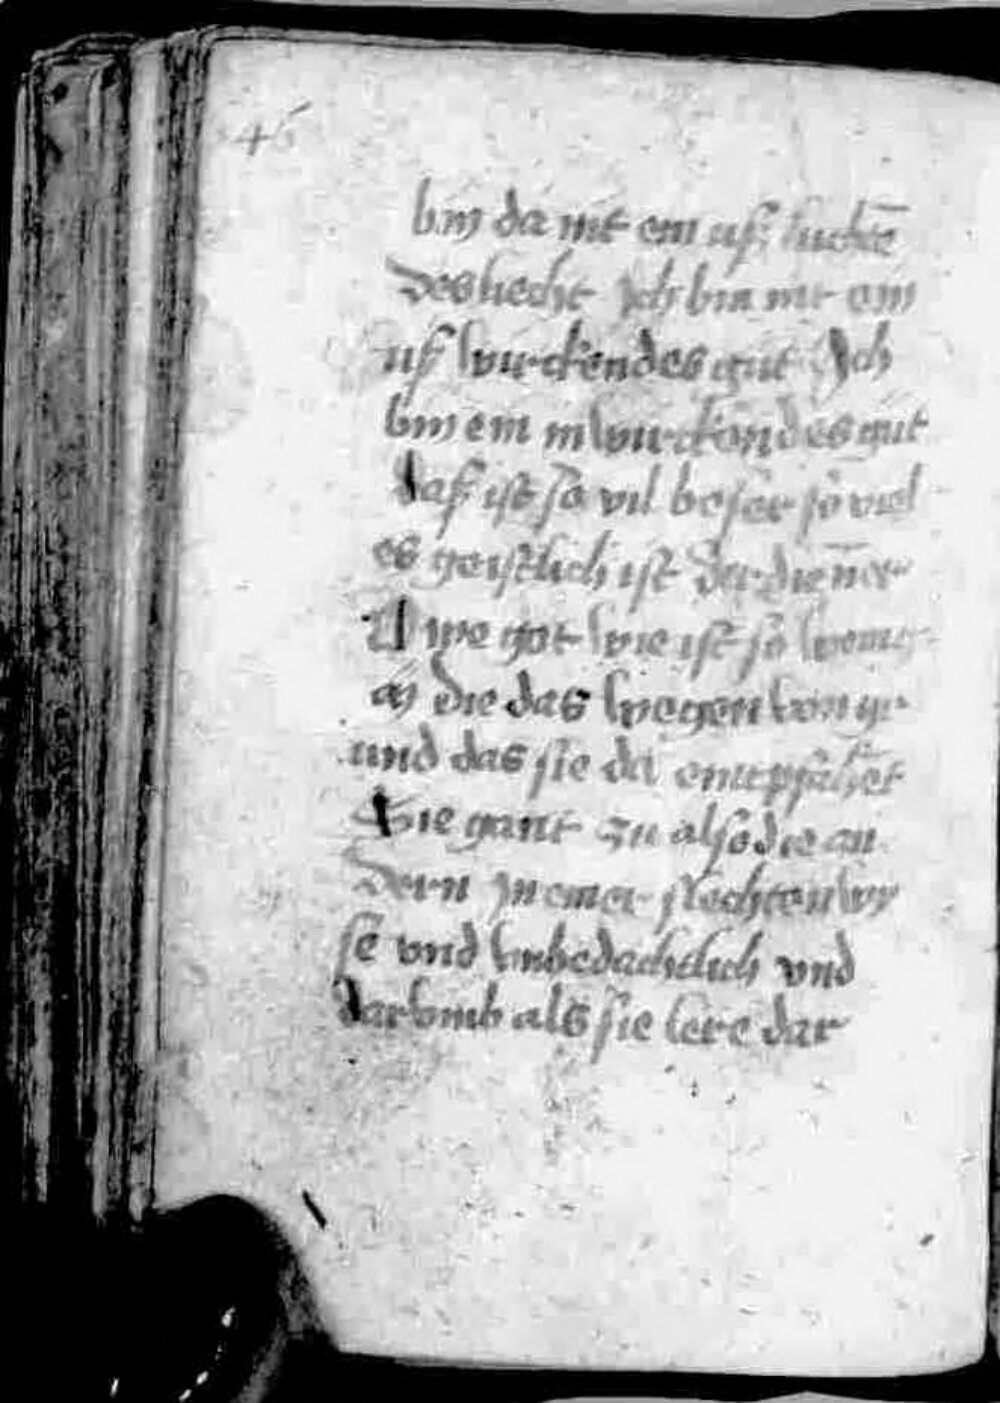 46
bin da nit ein uß luchtē
des liecht Ich bin nit ein
uß wurckendes gut Ich
bin ein in wurckendes gut
daß ist so vil beser so viel
es geistlich ist Der diener
Awe got wie ist so wenig
an die das wegen von
und das sie da
Sie gant zu also die an
dern In einer slechten wy
se vnd vnbedachtlich vnd
darvmb als sie lere dar